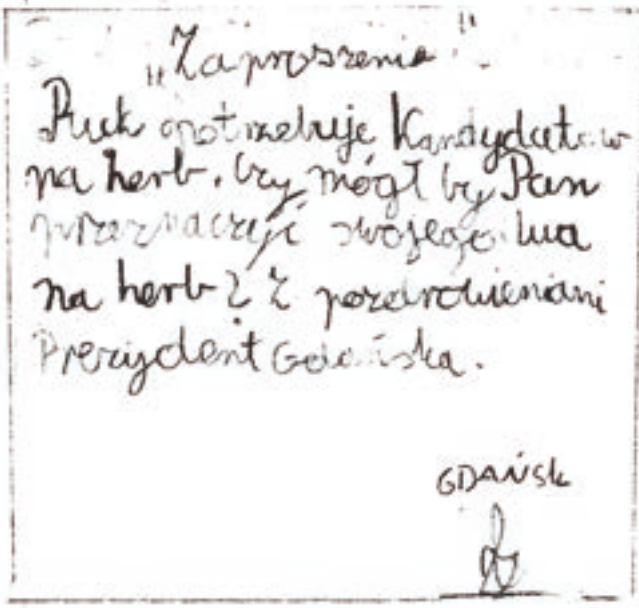 "Zaproszenie"
Puck potrzebuje Kandydatów
na herb. Czy mógł by Pan
swojego lwa
na herb? Z pozdrowieniami
Prezydent Gdańska.
GDAŃSK